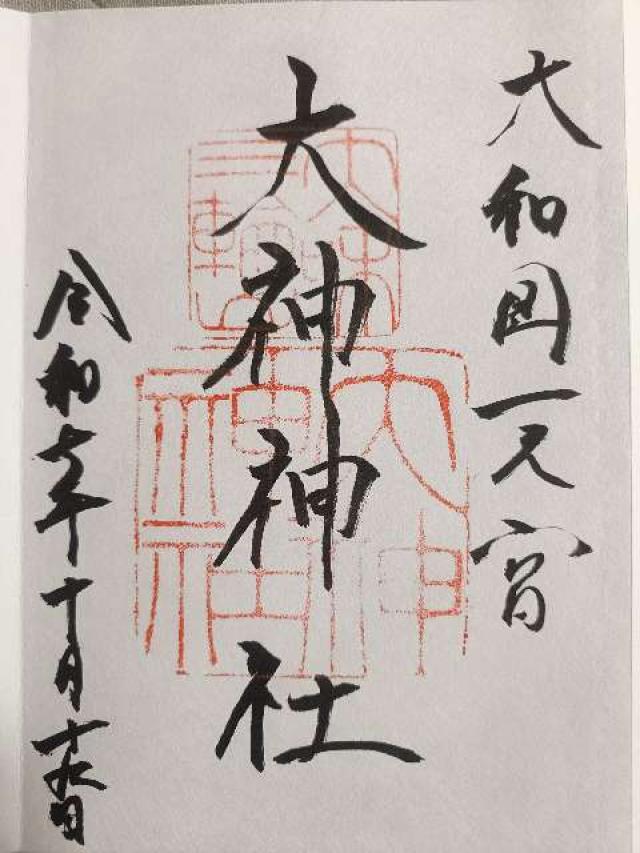 大和国一之宮
大神神社
令和六年十月十九日
大神神社